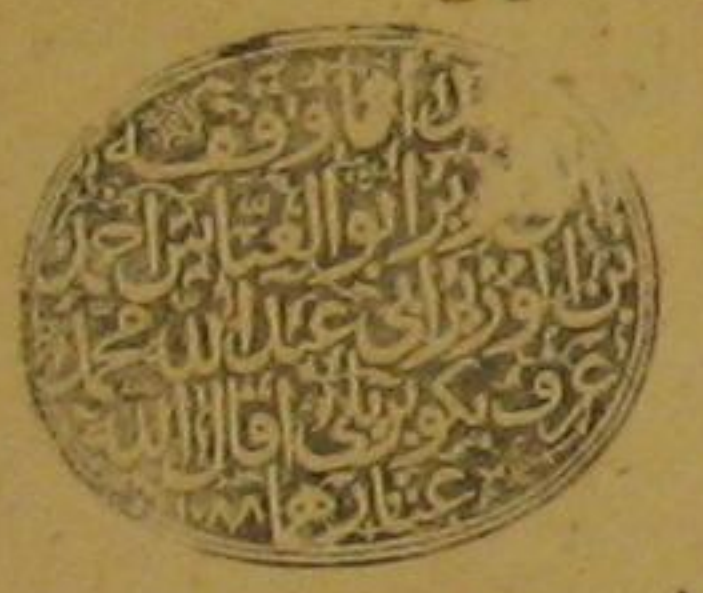 مما وقفه
ابو العباس احمد
بن الوزير ابي عبد الله محمد
عرف بكوبريلي اقال الله
عثارهما ١٠٨٨